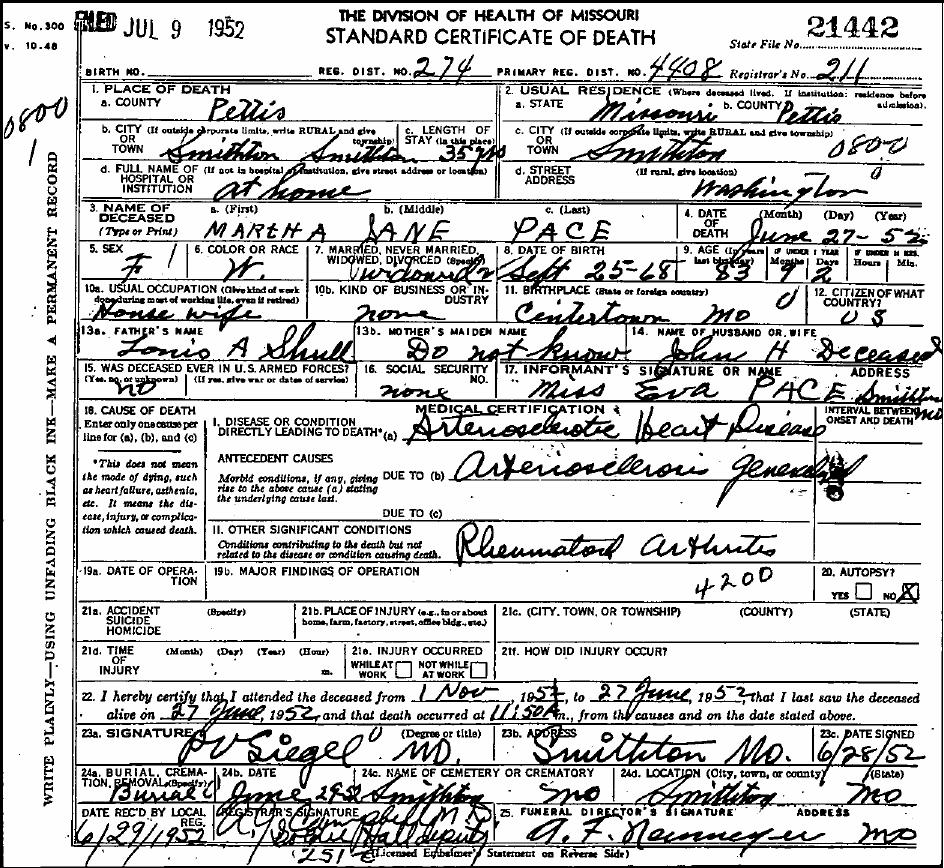 FILED JUL 9 1952
THE DIVISION OF HEALTH OF MISSOURI
STANDARD CERTIFICATE OF DEATH
21442
State File No.
S. No. 300
v. 10-48
BIRTH NO. REG. DIST. NO. 274 PRIMARY REG. DIST. NO. 4408 Registrar's No. 211
0800
1
WRITE PLAINLY—USING UNFADING BLACK INK—MAKE A PERMANENT RECORD
1. PLACE OF DEATH
a. COUNTY Pettis
2. USUAL RESIDENCE (Where deceased lived. If institution: residence before admission).
a. STATE Missouri b. COUNTY Pettis
b. CITY (If outside corporate limits, write RURAL and give township)
OR TOWN Smithton Smithton
c. LENGTH OF STAY (in this place) 35 yrs
c. CITY (If outside corporate limits, write RURAL and give township)
OR TOWN Smithton 0800
d. FULL NAME OF (If not in hospital or institution, give street address or location)
HOSPITAL OR INSTITUTION at home
d. STREET ADDRESS (If rural, give location)
Washington
3. NAME OF DECEASED (Type or Print)
a. (First) MARTHA b. (Middle) JANE c. (Last) PACE
4. DATE OF DEATH (Month) (Day) (Year)
June 27-52
5. SEX F 1
6. COLOR OR RACE W.
7. MARRIED, NEVER MARRIED, WIDOWED, DIVORCED (Specify)
widowed 2
8. DATE OF BIRTH Sept 25-68
9. AGE (In years last birthday) 83
IF UNDER 1 YEAR Months 9 Days 2
IF UNDER 24 HRS. Hours Min.
10a. USUAL OCCUPATION (Give kind of work done during most of working life, even if retired)
House wife
10b. KIND OF BUSINESS OR INDUSTRY
none
11. BIRTHPLACE (State or foreign country)
Centertown Mo 0
12. CITIZEN OF WHAT COUNTRY?
U S
13a. FATHER'S NAME
Louis A Shull
13b. MOTHER'S MAIDEN NAME
Do not know
14. NAME OF HUSBAND OR WIFE
John H Deceased
15. WAS DECEASED EVER IN U.S. ARMED FORCES?
(Yes, no, or unknown) (If yes, give war or dates of service)
no
16. SOCIAL SECURITY NO.
none
17. INFORMANT'S SIGNATURE OR NAME ADDRESS
Miss Eva PACE Smithton Mo
18. CAUSE OF DEATH
Enter only one cause per line for (a), (b), and (c)
*This does not mean the mode of dying, such as heart failure, asthenia, etc. It means the disease, injury, or complication which caused death.
MEDICAL CERTIFICATION
INTERVAL BETWEEN ONSET AND DEATH
I. DISEASE OR CONDITION DIRECTLY LEADING TO DEATH* (a) Arteriosclerotic Heart Disease
ANTECEDENT CAUSES
Morbid conditions, if any, giving rise to the above cause (a) stating the underlying cause last.
DUE TO (b) Arteriosclerosis generalized
DUE TO (c)
II. OTHER SIGNIFICANT CONDITIONS
Conditions contributing to the death but not related to the disease or condition causing death.
Rheumatoid arthritis
19a. DATE OF OPERATION
19b. MAJOR FINDINGS OF OPERATION
4200
20. AUTOPSY?
YES NO X
21a. ACCIDENT SUICIDE HOMICIDE (Specify)
21b. PLACE OF INJURY (e.g., in or about home, farm, factory, street, office bldg., etc.)
21c. (CITY, TOWN, OR TOWNSHIP) (COUNTY) (STATE)
21d. TIME OF INJURY (Month) (Day) (Year) (Hour) m.
21e. INJURY OCCURRED
WHILE AT WORK NOT WHILE AT WORK
21f. HOW DID INJURY OCCUR?
22. I hereby certify that I attended the deceased from 1 Nov, 1951, to 27 June, 1952, that I last saw the deceased
alive on 27 June, 1952, and that death occurred at 11:50 A m., from the causes and on the date stated above.
23a. SIGNATURE (Degree or title)
P V Siegel MD.
23b. ADDRESS
Smithton Mo.
23c. DATE SIGNED
6/28/52
24a. BURIAL, CREMATION, REMOVAL (Specify)
Burial
24b. DATE
June 29-52
24c. NAME OF CEMETERY OR CREMATORY
Smithton Mo
24d. LOCATION (City, town, or county) (State)
Smithton Mo
DATE REC'D BY LOCAL REG.
6/29/1952
REGISTRAR'S SIGNATURE
deputy
251
25. FUNERAL DIRECTOR'S SIGNATURE ADDRESS
A. F. Neumeyer Mo
(Licensed Embalmer's Statement on Reverse Side)